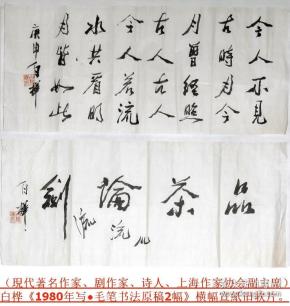 今人不見
古時月今
月曾經照
古人古人
今人若流
水共看明
月皆如此
庚申白樺
品茶論劍
白樺
（現代著名作家、剧作家、诗人、上海作家协会副主席）
白桦《1980年写●毛笔书法原稿2幅》横幅宣纸旧软片。